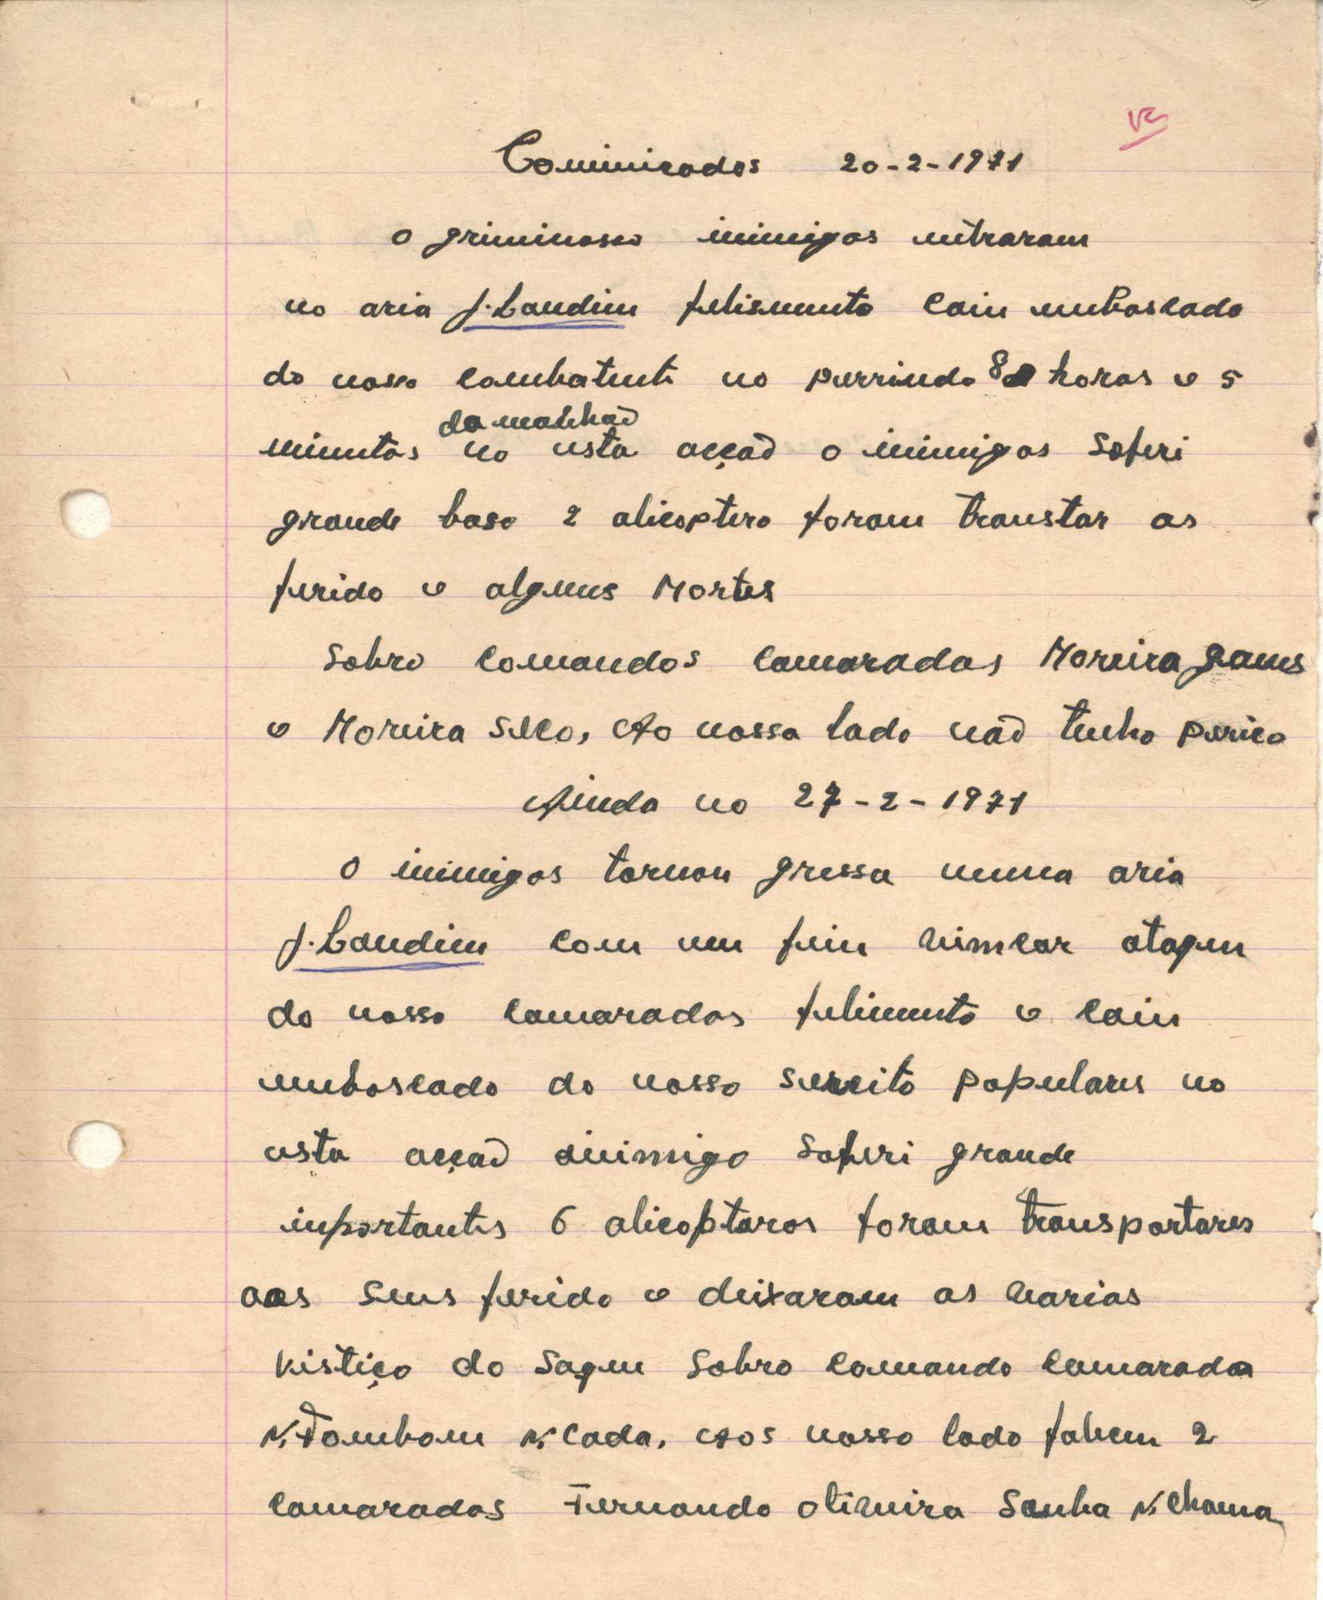 Cominicados 20-2-1971
o griminosos inimigos entraram
no aria J. Landim felismente cain enboscado
do nosso combatente no perrindo 8 horas e 5
da manhão
minutos no esta acção o inimigos soferi
grande baso 2 alicoptero foram transtar as
ferido e algeuns Mortes
sobro comandos camaradas Moreira games
e Moreira seco, Ao nossa lado não tenho perica
Ainda no 27-2-1971
O inimigos tornou gressa numa aria
J. Landim com um fein vimcar atagen
do nosso camaradas felimento e cain
enboscado do nosso sercito populares no
esta acção oinimigo soferi grande
inportantes 6 alicoptaros foram transportares
aos seus ferido e deixaram as varias
vistiço do sagen sobro comando camarada
N, Tombom N, cada, Aos nosso lado fahem 2
camaradas Fernando oliveira Sanha N, chama